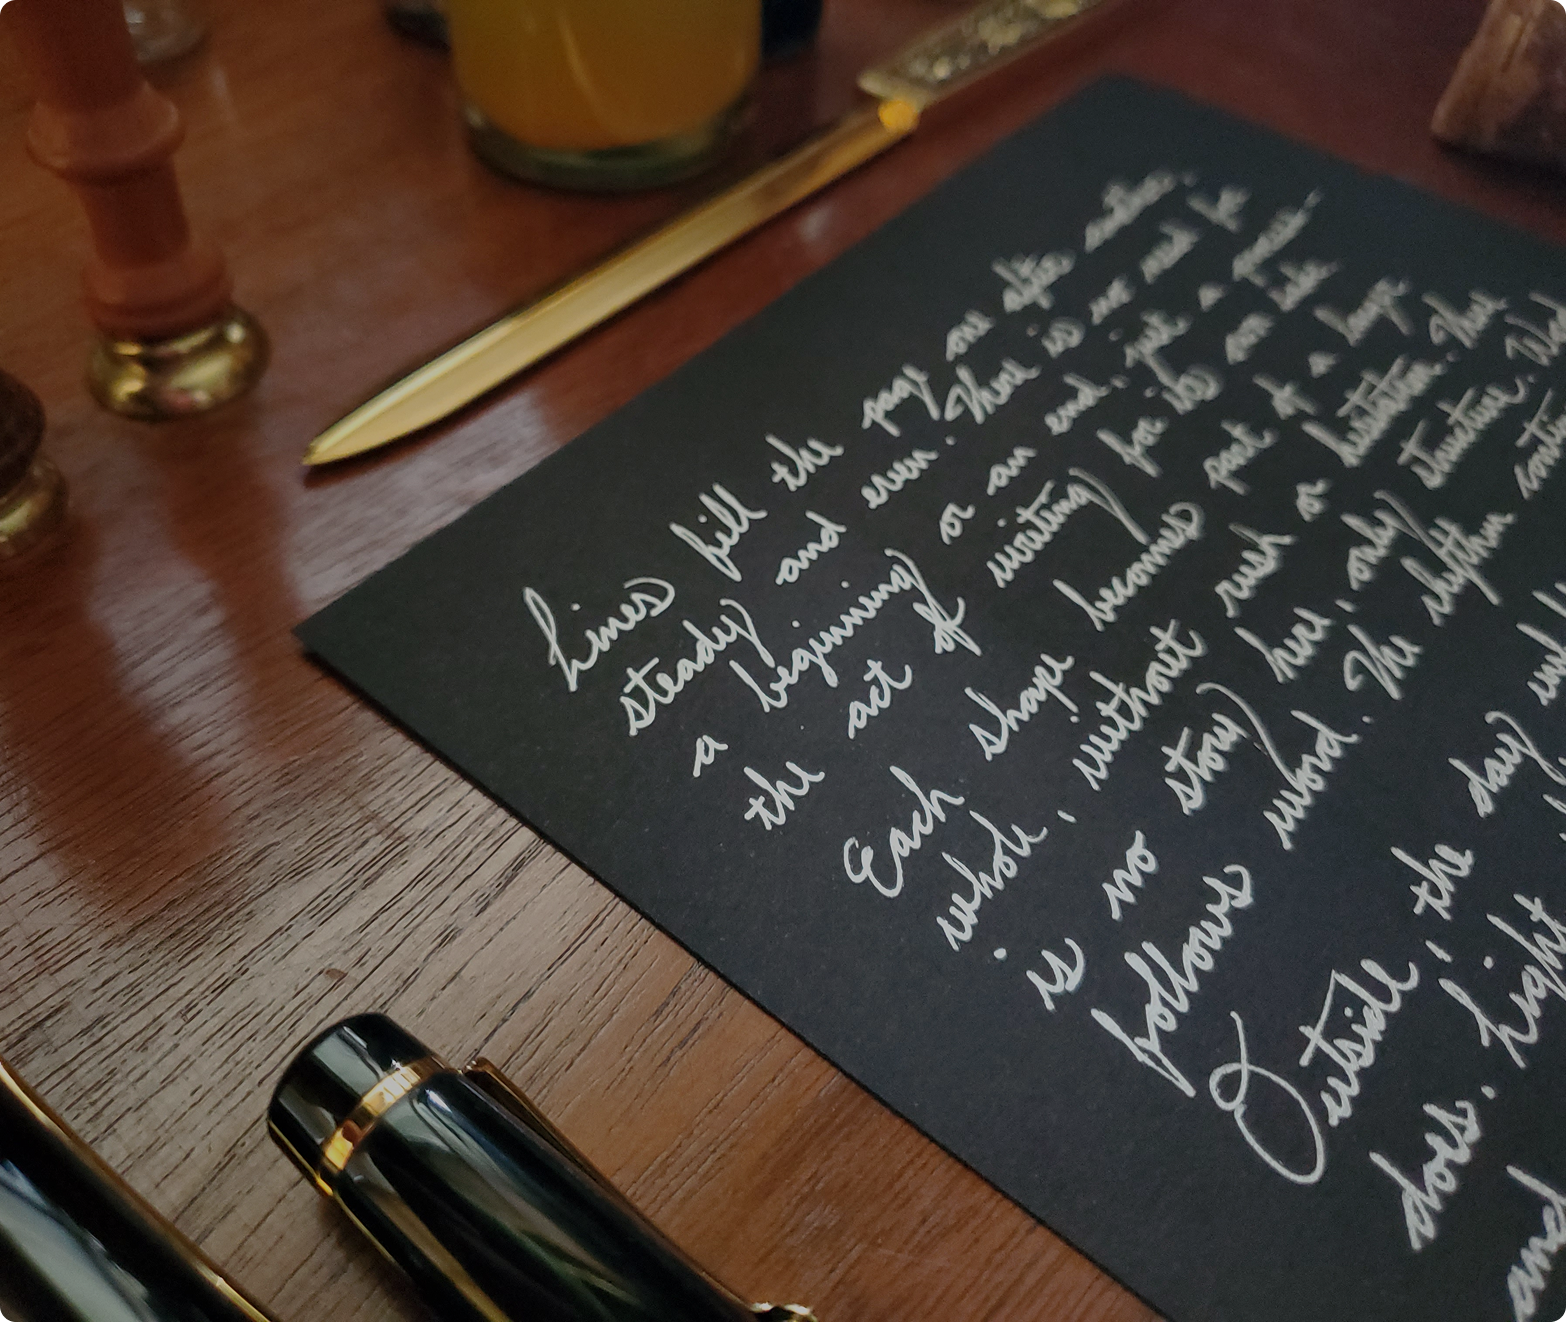 Lines fill the page one after another,
steady and even. There is no need for
a beginning or an end, just a
the act of writing for its own sake
Each shape becomes part of a large
whole, without rush or hesitation. There
is no story here, only structure. Word
follows word. The rhythm
Outside, the day
does. Light
and